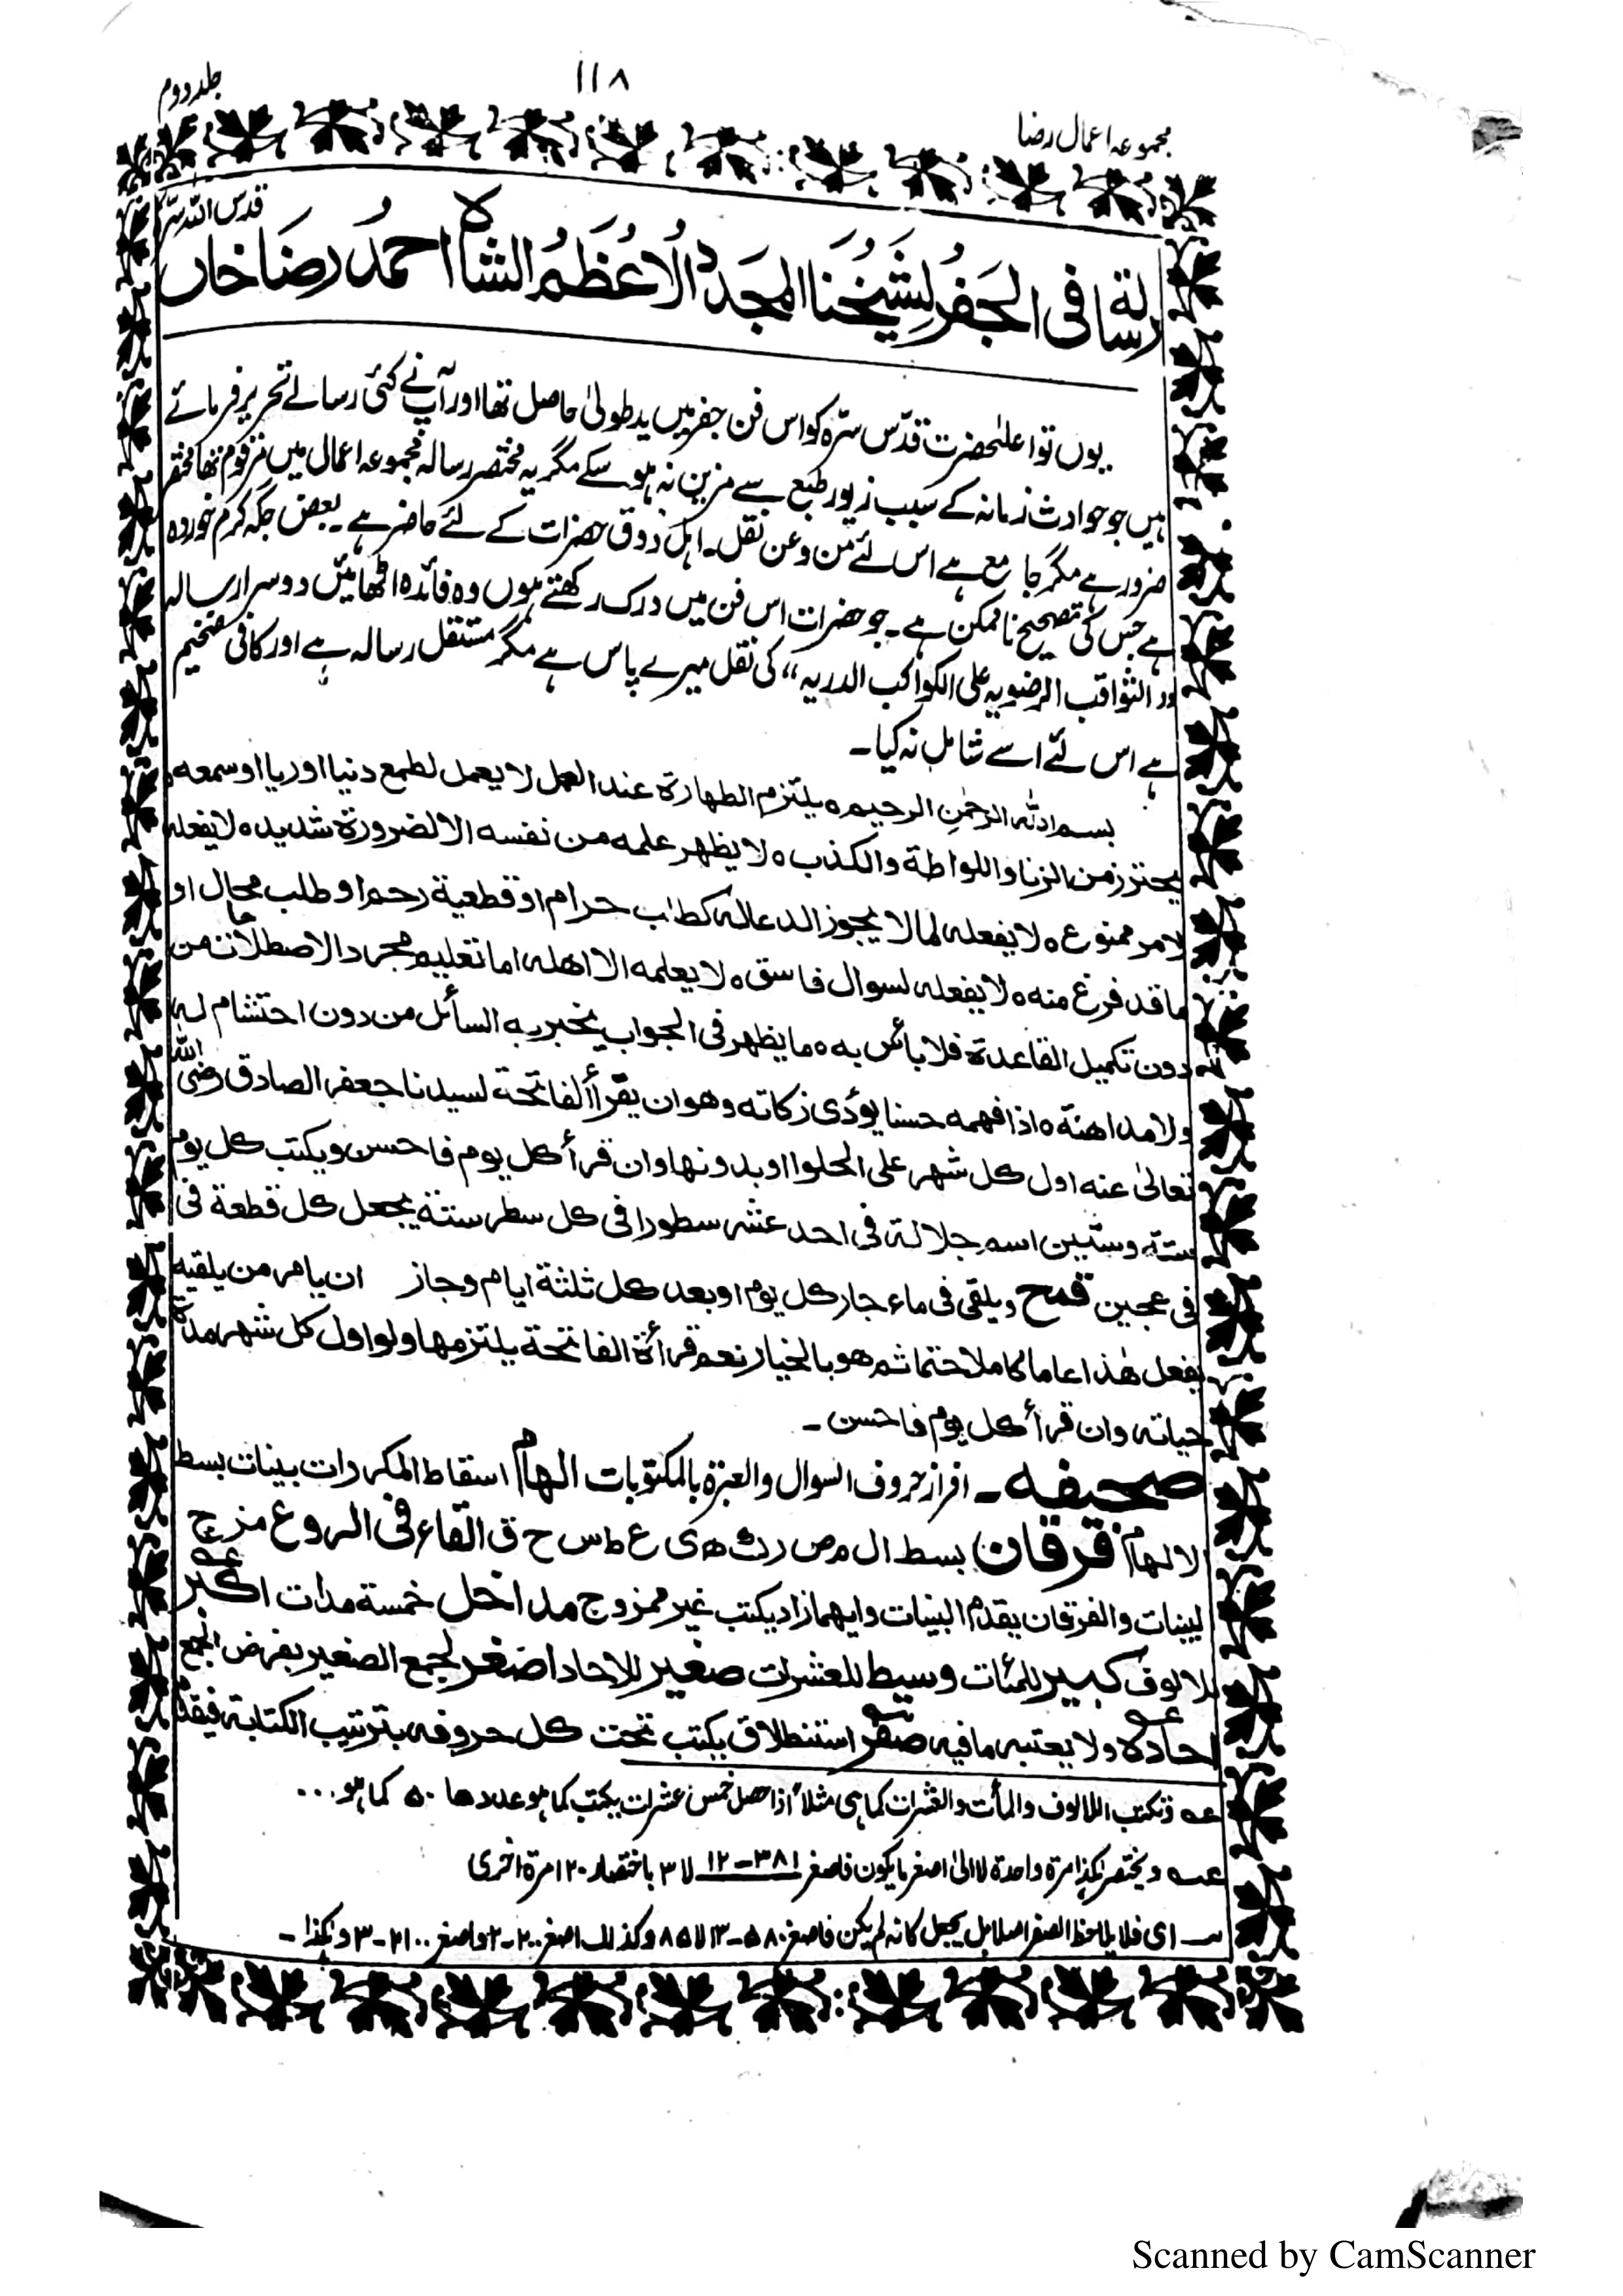 جلد دوم
١١٨
مجموعہ اعمال رضا
رسالة فی الجَفرُ لِشَیخنا المجَدّدُ الاُعُظَمُ الشاہ احمدُ رضَا خاں قدس اللہ سرہ
یوں تو اعلیٰحضرت قدّس سرّہ کو اس فن جفر میں ید طولیٰ حاصل تھا اور آپ نے کئی رسالے تحریر فرمائے
ہیں جو حوادث زمانہ کے سبب زیور طبع سے مزین نہ ہو سکے مگر یہ مختصر رسالہ مجموعہ اعمالی میں مرقوم تھا مختصر
ضرور ہے مگر جامع ہے اس لئے من وعن نقل۔ اہل ذوق حضرات کے لئے حاضر ہے۔ بعض جگہ کرم خوردہ
ہے جس کی تصحیح ناممکن ہے۔ جو حضرات اس فن میں درک رکھتے ہوں وہ فائدہ اٹھائیں دوسرا رسالہ
در الثواقب الرضویہ علی الکواکب الدریہ“ کی نقل میرے پاس ہے مگر مستقل رسالہ ہے اور کافی ضخیم
ہے اس لئے اسے شامل نہ کیا۔
بسم اللہ الرحمٰنِ الرحیم ہ یلتزم الطهارة عند العمل لا یعمل لطمع دنیا او ریا او سمعہ
یحترز من الزنا واللواطة والکذب ہ لا یظهر علمه من نفسه الا لضرورة شدیدہ لا یفعله
لامر ممنوع ہ لا یفعله لما لا یجوز الدعا له کطلب حرام او قطعیة رحم او طلب محال او
ما قد فرغ منه ہ لا یفعله لسوال فاسق ہ لا یعلمه الا اهله اما تعلیم مجرد الاصطلاحات من
دون تکمیل القاعدة فلا بائس به ہ ما یظهر فی الجواب یخبر به السائل من دون احتشام له
ولا مداهنة ہ اذا فهمه حسنا یؤدی زکاته وهو ان یقرأ الفاتحة لسیدنا جعفر الصادق رضی اللہ
تعالیٰ عنه اول کل شهر علی الحلوا او بدونها وان قرأ کل یوم فاحسن ویکتب کل یوم
ستة وستین اسم جلالة فی احد عشر سطورا فی کل سطر ستة یجعل کل قطعة فی
فی عجین قمح ویلقی فی ماء جار کل یوم او بعد کل ثلثة ایام وجاز ان یامر من یلقیه
یفعل هٰذا عاما کاملا حتما ثم هو بالخیار نعم قرأة الفاتحة یلتزمها ولو اول کل شهر مدة
حیاته وان قرأ کل یوم فاحسن۔
صحیفہ۔ افراز حروف السوال والعبرة بالمکتوبات الهام اسقاط المکررات بینات بسط
الالهام فرقان بسط ال م ص ر ک ہ ی ع ط س ح ق القاء فی الروع مزج
لبینات والفرقان بقدم البینات وایهما زاد یکتب غیر ممزوج مداخل خمسة مدات اکبر
للالوف کبیر للمئات وسیط للعشرات صغیر للاحاد اصغر لجمع الصغیر بفرض الجمع
احادہ ولا یعتبر ما فیه صفر استنطلاق یکتب تحت کل حروفہ بترتیب الکتابة فیقدم
عہ نکتب اللالوف والمأت والعشرات کما ہی مثلاً اذا حصل خمس عشرات یکتب کما ہو عددها ٥٠ کما ہو...
عہ ویختصر ہٰکذا مرة واحدة لا الیٰ اصغر ما یکون فاصغر ٣٨١ – ١٢ لا ٣ باختصار ١٢٠ مرة اخریٰ
سہ ای فلا یلاحظ الصفر اصلا بل یجعل کانه لم یکن فاصغر ٥٨٠ – ١٣ لا ٨٥ وکذالك اصغر ٢٠٠ – ٢ واصغر ٢١٠٠ – ٣ وہٰکذا۔
Scanned by CamScanner